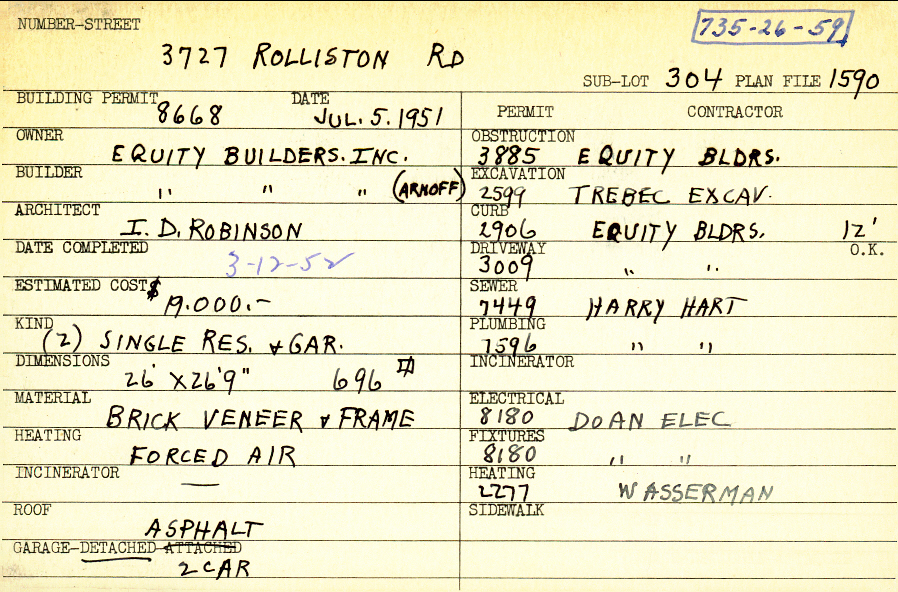 NUMBER-STREET
735-26-59
3727 ROLLISTON RD
SUB-LOT 304 PLAN FILE 1590
BUILDING PERMIT DATE
8668 JUL. 5. 1951
OWNER
EQUITY BUILDERS. INC.
BUILDER
" " " (ARNOFF)
ARCHITECT
I. D. ROBINSON
DATE COMPLETED
3-12-52
ESTIMATED COST $
19.000.-
KIND
(2) SINGLE RES. & GAR.
DIMENSIONS
26' X 26'9" 696
MATERIAL
BRICK VENEER & FRAME
HEATING
FORCED AIR
INCINERATOR
—
ROOF
ASPHALT
GARAGE-DETACHED ATTACHED
2 CAR
PERMIT CONTRACTOR
OBSTRUCTION
3885 EQUITY BLDRS.
EXCAVATION
2599 TREBEC EXCAV.
CURB
2906 EQUITY BLDRS. 12'
DRIVEWAY O.K.
3009 " "
SEWER
7449 HARRY HART
PLUMBING
7596 " "
INCINERATOR
ELECTRICAL
8180 DOAN ELEC
FIXTURES
8180 " "
HEATING
2277 WASSERMAN
SIDEWALK